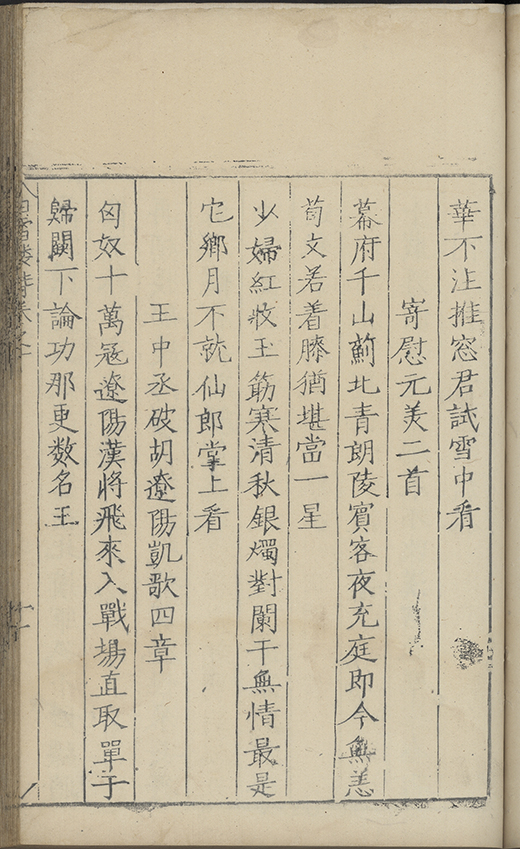 華不注推窓君試雪中看
寄慰元美二首
幕府千山薊北青朗陵賓客夜充庭即今無恙
荀文若着膝猶堪當一星
少婦紅妝玉筯寒清秋銀燭對闌干無情最是
它鄉月不就仙郎掌上看
王中丞破胡遼陽凱歌四章
匈奴十萬冦遼陽漢將飛來入戰場直取單于
歸闕下論功那更数名王
白雪樓詩集卷之